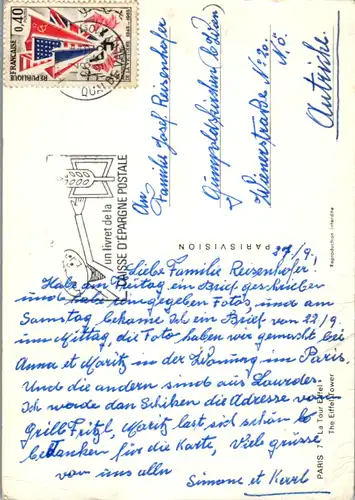 0,40
REPUBLIQUE FRANÇAISE
un livret de la
CAISSE D'EPARGNE POSTALE
An
Familie Josef Reisenhofer
Gumpoldskirchen b/Wien
Wienerstraße No 20
Nö.
Autriche
PARISVISION
Reproduction interdite
PARIS
La Tour Eiffel
The Eiffel Tower
27/9.
Liebe Familie Reisenhofer!
Habe am Freitag ein Brief geschrieben
und habe eingegeben Fotos und am
Samstag bekame Ich ein Brief vom 22/9.
um Mittag, die Foto haben wir gemacht bei
Anna et Moritz in der Wohnung im Paris.
Und die andern sind aus Lourdes
Ich werde dan Schiken die Adresse von
Grill Fritzl, Moritz last sich schön
bedanken für die Karte, Viele grüsse
von uns allen
Simone et Karl